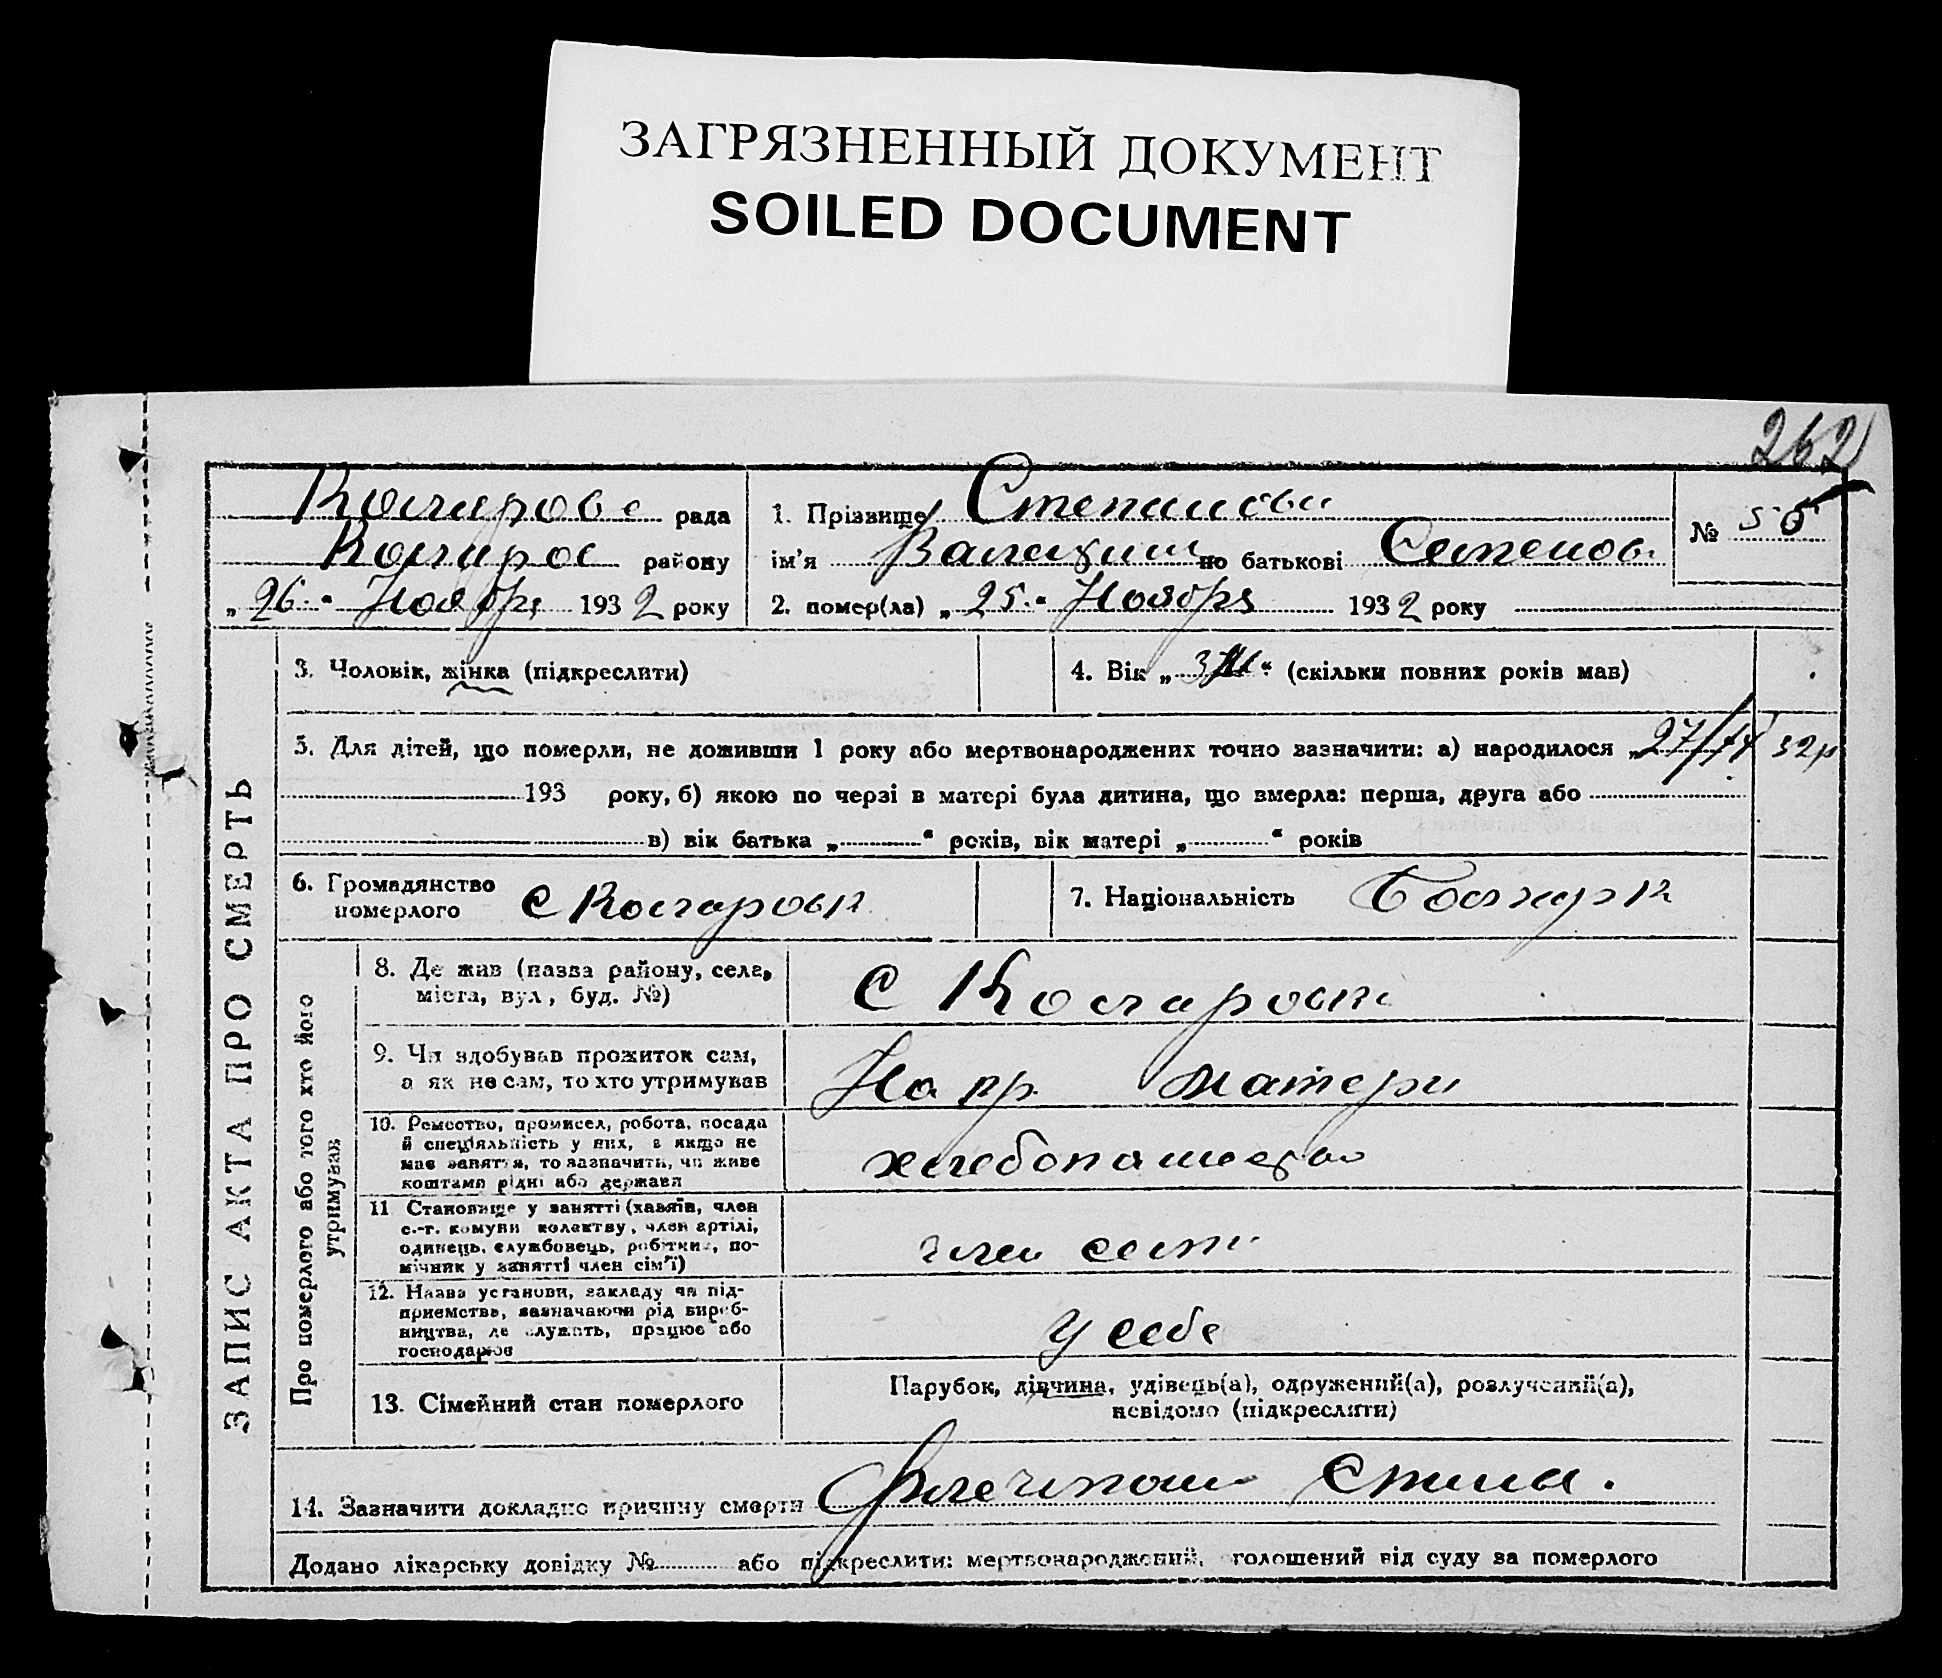 ЗАГРЯЗНЕННЫЙ ДОКУМЕНТ
SOILED DOCUMENT
262
рада
району
„ 26 “ Ноября 1932 року
1. Прізвище Степанова
ім'я по батькові Семенов
2. помер(ла) „ 25 “ Ноября 1932 року
№ 55
ЗАПИС АКТА ПРО СМЕРТЬ
3. Чоловік, жінка (підкреслити)
4. Вік „ “ (скільки повних років мав)
5. Для дітей, що померли, не доживши 1 року або мертвонароджених точно зазначити: а) народилося „ 32р
193 року, б) якою по черзі в матері була дитина, що вмерла: перша, друга або
в) вік батька „ “ років, вік матері „ “ років
6. Громадянство
померлого
7. Національність
Про померлого або того хто його
утримував
8. Де жив (назва району, села,
міста, вул, буд. №)
с
9. Чи здобував прожиток сам,
а як не сам, то хто утримував
На пр. матери
10. Ремество, промисел, робота, посада
й спеціяльність у них, а якщо не
має заняття, то зазначити, чи живе
коштами рідні або держави
11 Становище у занятті (хазяїн, член
с.-г. комуни колектву, член артілі,
одинець, службовець, робітник, по-
мічник у занятті член сім'ї)
член
12. Назва установи, закладу чи під-
приємства, зазначаючи рід вироб-
ництва, де служить, працює або
господарює
у себе
13. Сімейний стан померлого
Парубок, дівчина, удівець(а), одружений(а), розлучений(а),
невідомо (підкреслити)
14. Зазначити докладно причину смерти
Додано лікарську довідку № або підкреслити: мертвонароджений, голошений від суду за померлого